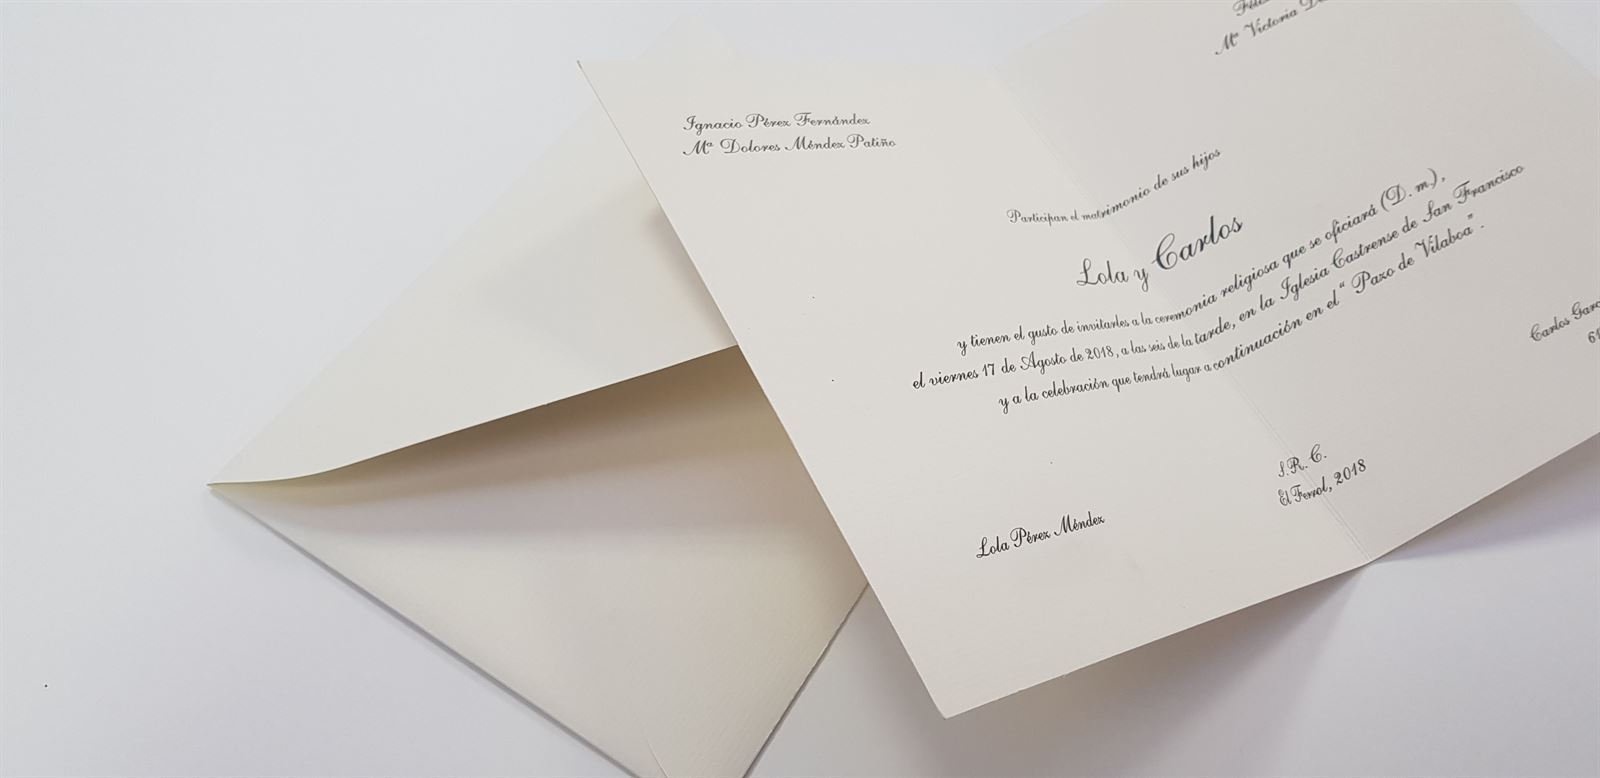 Ignacio Pérez Fernández
Mª Dolores Méndez Patiño
Mª Victoria
Participan el matrimonio de sus hijos
Lola y Carlos
y tienen el gusto de invitarles a la ceremonia religiosa que se oficiará (D. m.),
el viernes 17 de Agosto de 2018, a las seis de la tarde, en la Iglesia Castrense de San Francisco
y a la celebración que tendrá lugar a continuación en el “ Pazo de Vilaboa ”.
S. R. C.
El Ferrol, 2018
Lola Pérez Méndez
Carlos